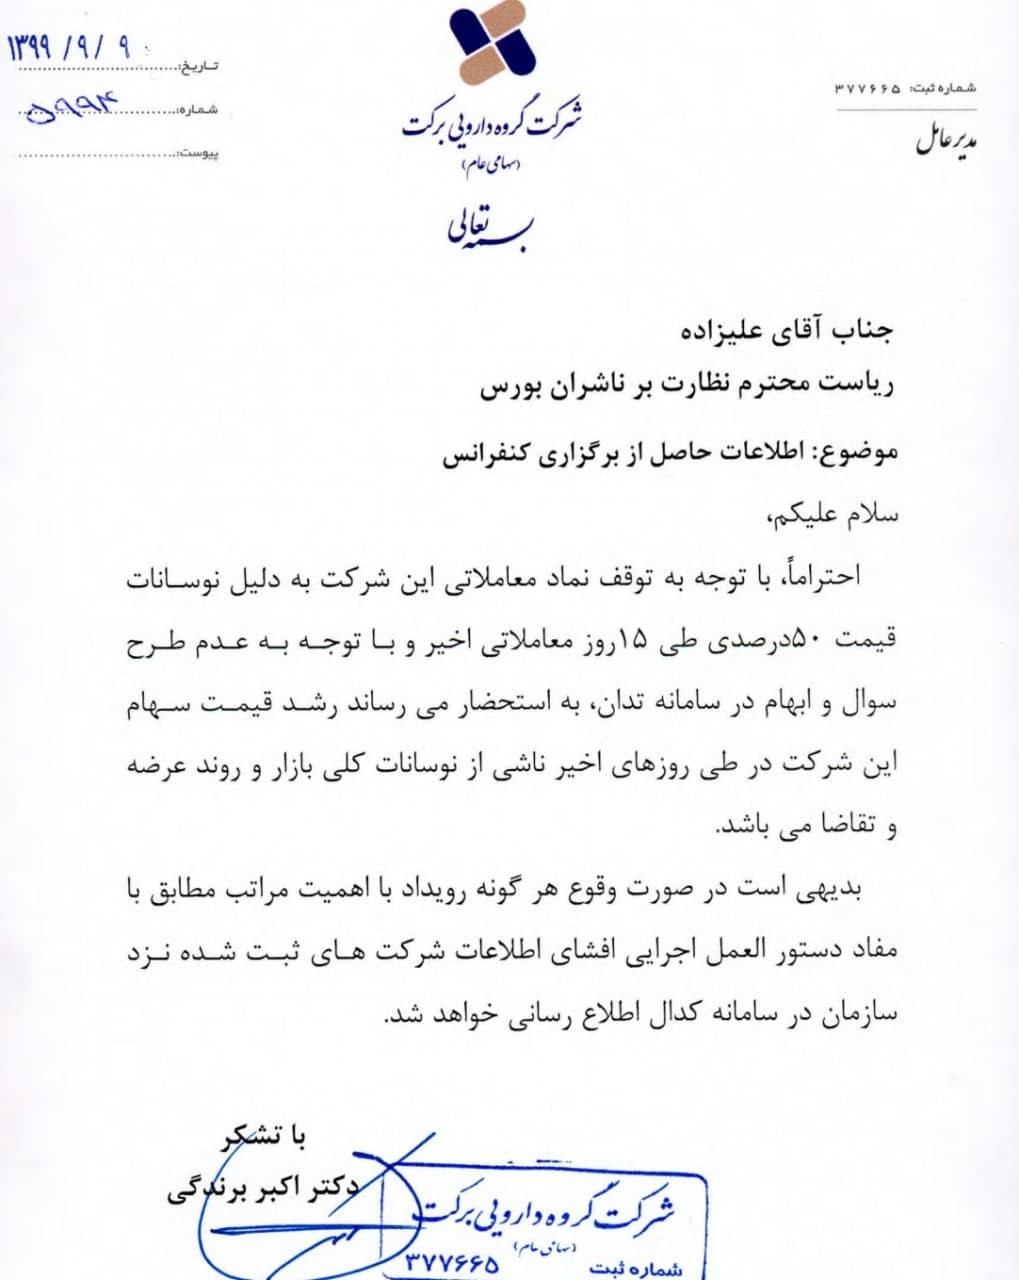 تاریخ: ۱۳۹۹/۹/۹
شماره:
پیوست:
شرکت گروه دارویی برکت
(سهامی عام)
بسمه تعالی
شماره ثبت: ۳۷۷۶۶۵
مدیرعامل
جناب آقای علیزاده
ریاست محترم نظارت بر ناشران بورس
موضوع: اطلاعات حاصل از برگزاری کنفرانس
سلام علیکم،
احتراماً، با توجه به توقف نماد معاملاتی این شرکت به دلیل نوسانات
قیمت ۵۰درصدی طی ۱۵روز معاملاتی اخیر و با توجه به عدم طرح
سوال و ابهام در سامانه تدان، به استحضار می رساند رشد قیمت سهام
این شرکت در طی روزهای اخیر ناشی از نوسانات کلی بازار و روند عرضه
و تقاضا می باشد.
بدیهی است در صورت وقوع هر گونه رویداد با اهمیت مراتب مطابق با
مفاد دستور العمل اجرایی افشای اطلاعات شرکت های ثبت شده نزد
سازمان در سامانه کدال اطلاع رسانی خواهد شد.
با تشکر
دکتر اکبر برندگی
شرکت گروه دارویی برکت
(سهامی عام)
شماره ثبت ۳۷۷۶۶۵